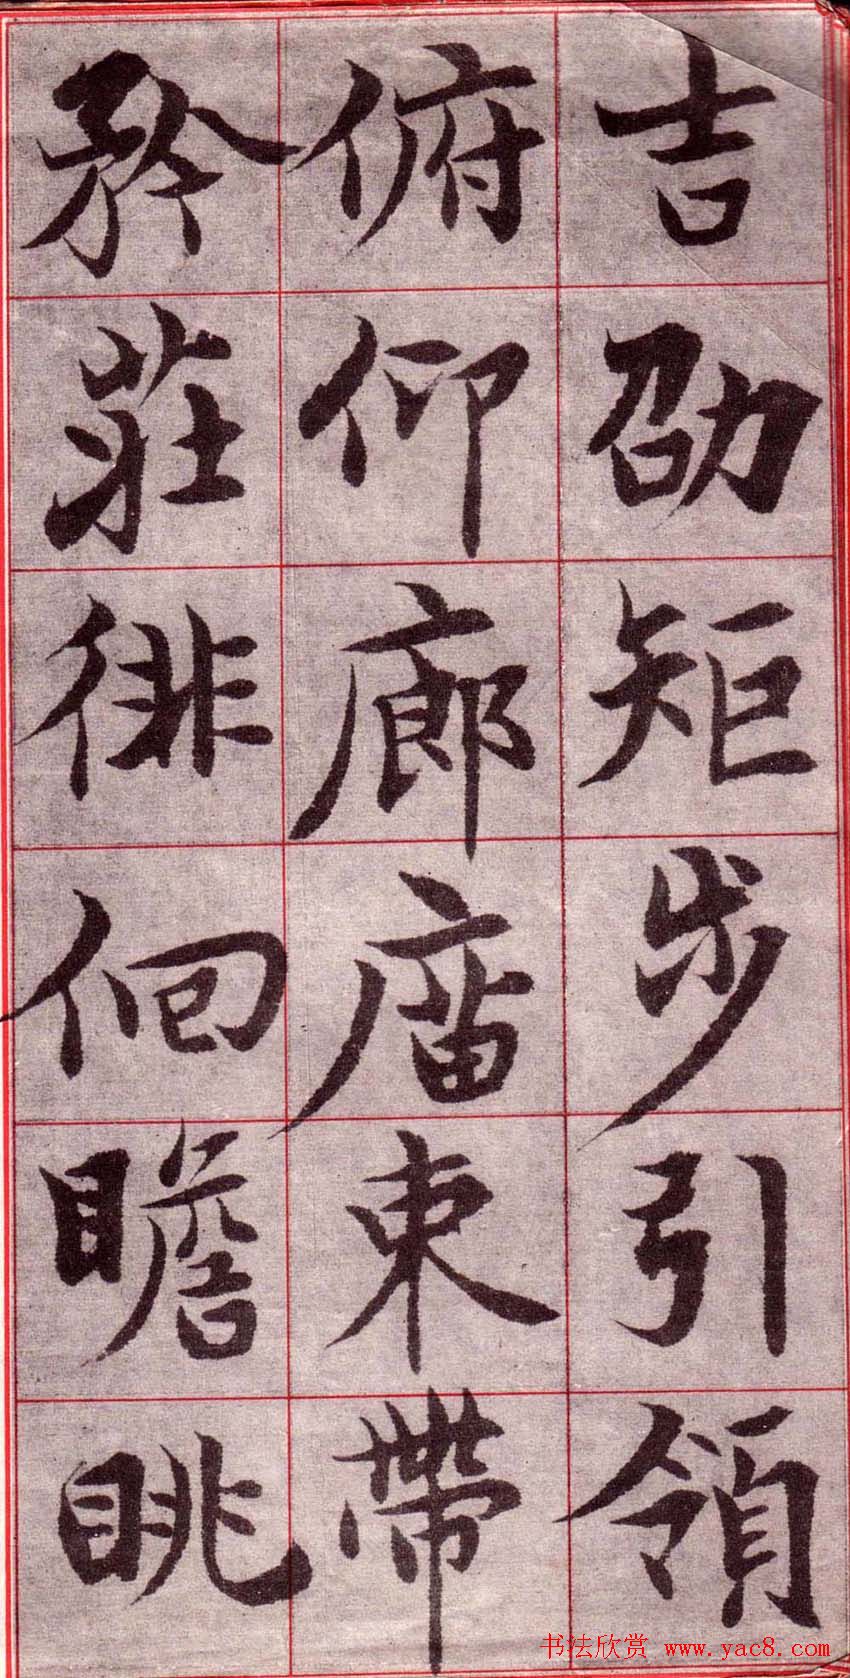 吉劭矩步引領
俯仰廊庿束帶
矜莊徘徊瞻眺
书法欣赏 www.yac8.com